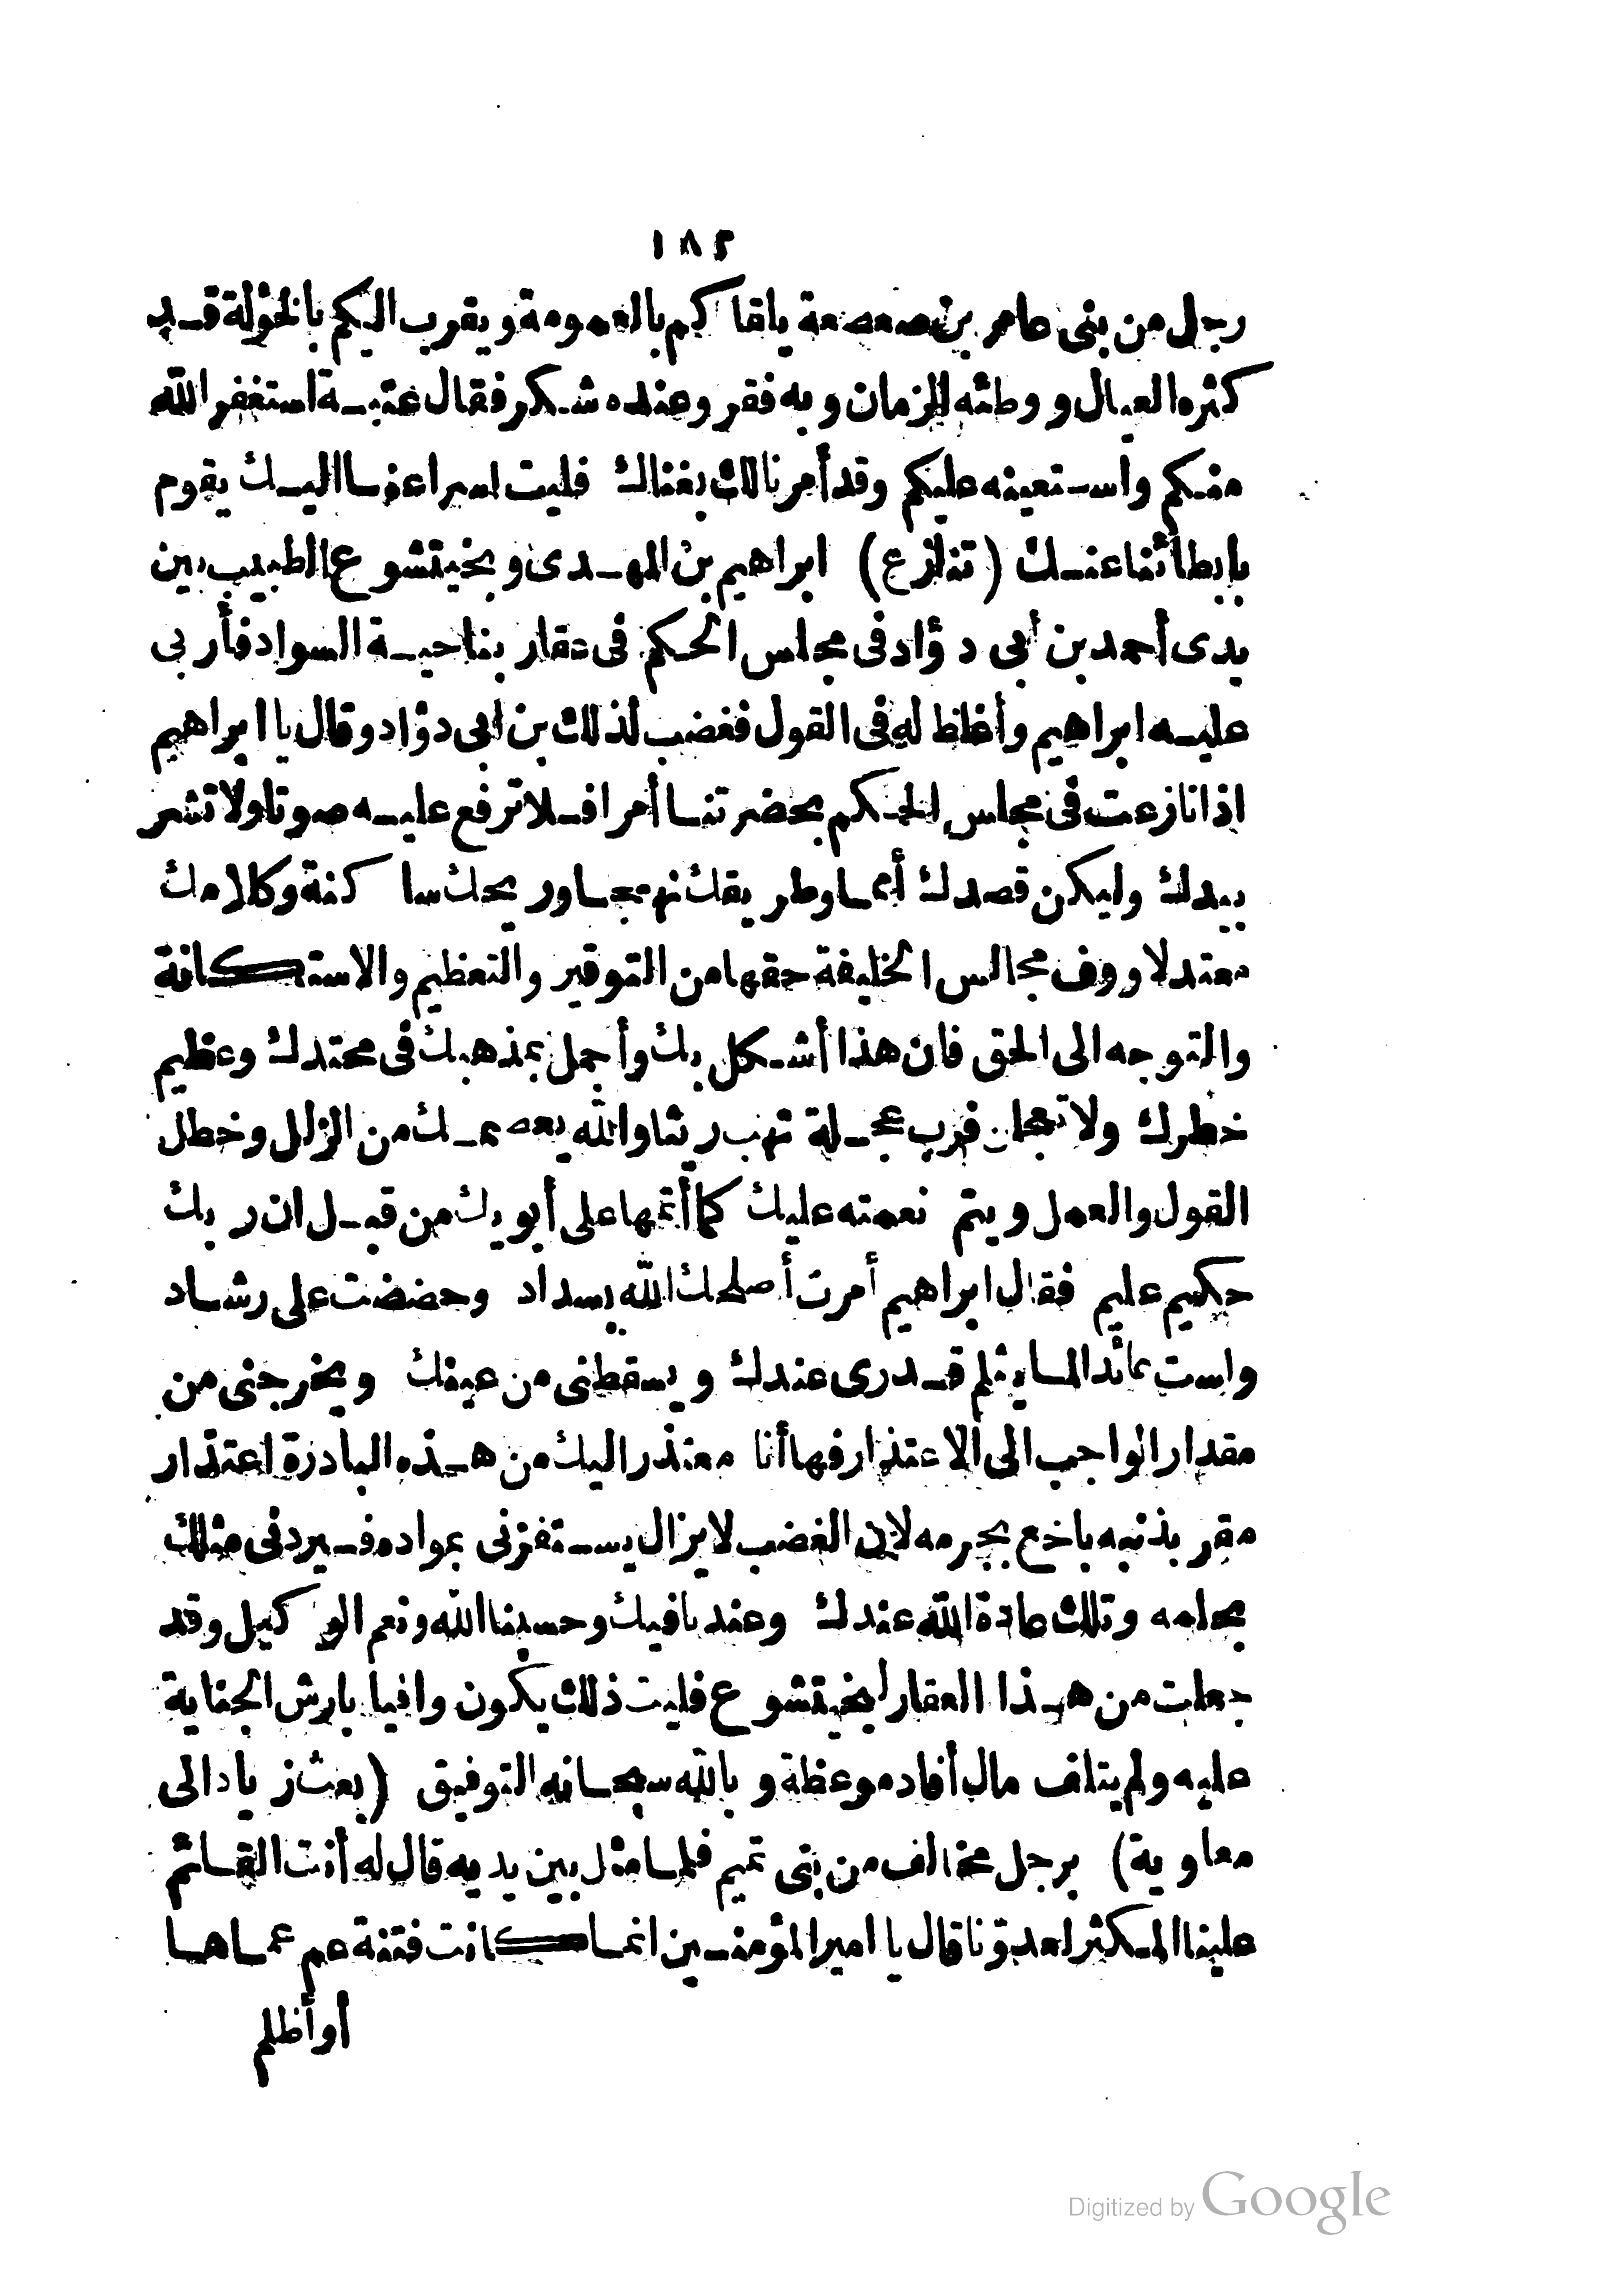 ١٨٤
رجل من بنى عامر بن صعصعة يلقاكم بالعمومة ويقرب اليكم بالخؤلة قد
كثره العيال ووطئه الزمان وبه فقر وعنده شكر فقال عتبة استغفر الله
منكم واستعينه عليكم وقد أمرنا لك بغناك فليت اسراعنا اليك يقوم
بابطائنا عنك (تنازع) ابراهيم بن المهدى وبختيشوع الطبيب بين
يدى أحمد بن أبى دؤاد فى مجلس الحكم فى عقار بناحية السواد فأربى
عليه ابراهيم وأغلظ له فى القول فغضب لذلك بن ابى دؤاد وقال يا ابراهيم
اذا نازعت فى مجلس الحكم بحضرتنا أمرا فلا ترفع عليه صوتا ولا تشر
بيدك وليكن قصدك أمما وطريقك نهجا وريحك ساكنة وكلامك
معتدلا ووف مجالس الخليفة حقها من التوقير والتعظيم والاستكانة
والتوجه الى الحق فان هذا أشكل بك وأجمل بمذهبك فى محتدك وعظيم
خطرك ولا تعجلن فرب عجلة تهب ريثا والله يعصمك من الزلل وخطل
القول والعمل ويتم نعمته عليك كما أتمها على أبويك من قبل ان ربك
حكيم عليم فقال ابراهيم أمرت أصلحك الله بسداد وحضضت على رشاد
ولست بعائد لما يثلم قدرى عندك ويسقطنى من عينك ويخرجنى من
مقدار الواجب الى الاعتذار فها أنا معتذر اليك من هذه البادرة اعتذار
مقر بذنبه باخع بجرمه لان الغضب لا يزال يستفزنى بمواده فيردنى مثلك
بحلمه وتلك عادة الله عندك وعندنا فيك وحسبنا الله ونعم الوكيل وقد
جعلت من هذا العقار لبختيشوع فليت ذلك يكون وافيا بارش الجناية
عليه ولم يتلف مال أفاد موعظة وبالله سبحانه التوفيق (بعث زياد الى
معاوية) برجل مخالف من بنى تميم فلما مثل بين يديه قال له أنت القائم
علينا المكثر لعدونا قال يا امير المؤمنين انما كانت فتنة عم عماها
أو أظلم
Digitized by Google